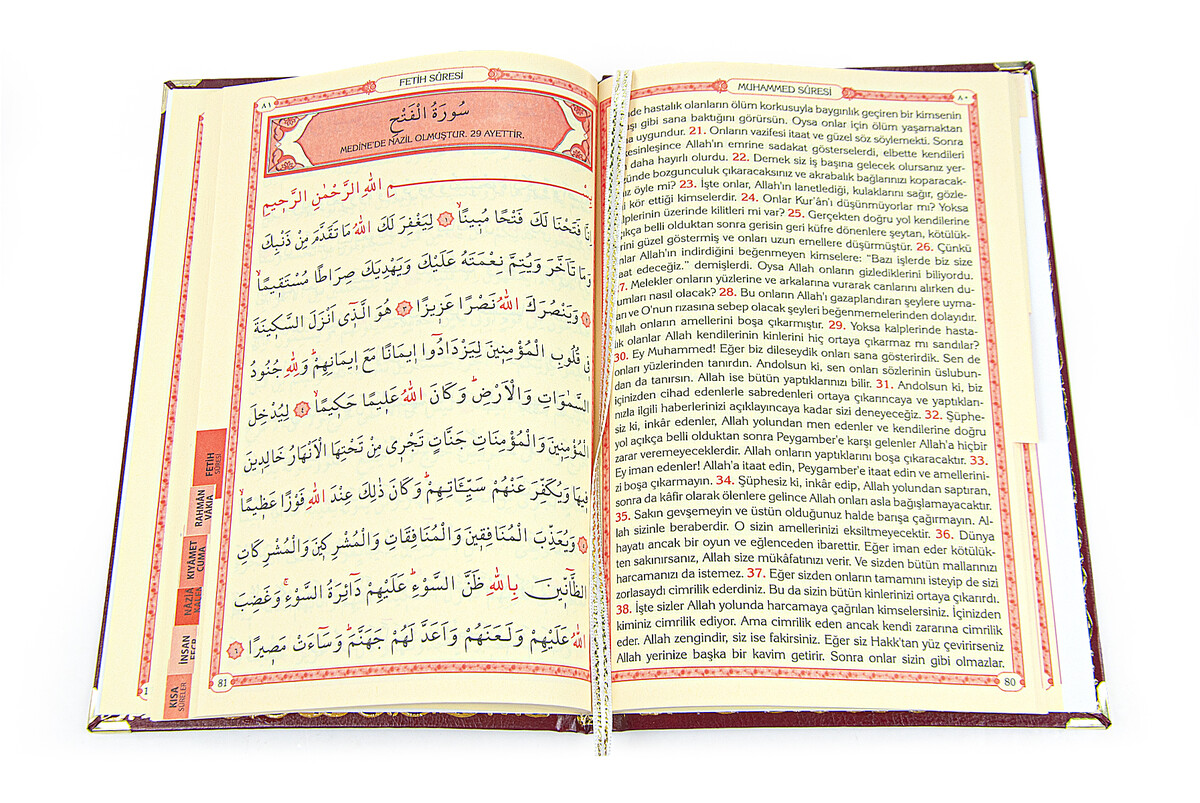 MUHAMMED SÛRESİ
٨٠
de hastalık olanların ölüm korkusuyla baygınlık geçiren bir kimsenin
şı gibi sana baktığını görürsün. Oysa onlar için ölüm yaşamaktan
a uygundur. 21. Onların vazifesi itaat ve güzel söz söylemekti. Sonra
kesinleşince Allah'ın emrine sadakat gösterselerdi, elbette kendileri
daha hayırlı olurdu. 22. Demek siz iş başına gelecek olursanız yer-
zünde bozgunculuk çıkaracaksınız ve akrabalık bağlarınızı koparacak-
ız öyle mi? 23. İşte onlar, Allah'ın lanetlediği, kulaklarını sağır, gözle-
i kör ettiği kimselerdir. 24. Onlar Kur'ân'ı düşünmüyorlar mı? Yoksa
lplerinin üzerinde kilitleri mi var? 25. Gerçekten doğru yol kendilerine
çıkça belli olduktan sonra gerisin geri küfre dönenlere şeytan, kötülük-
rini güzel göstermiş ve onları uzun emellere düşürmüştür. 26. Çünkü
nlar Allah'ın indirdiğini beğenmeyen kimselere: "Bazı işlerde biz size
aat edeceğiz." demişlerdi. Oysa Allah onların gizlediklerini biliyordu.
27. Melekler onların yüzlerine ve arkalarına vurarak canlarını alırken du-
umları nasıl olacak? 28. Bu onların Allah'ı gazaplandıran şeylere uyma-
arı ve O'nun rızasına sebep olacak şeyleri beğenmemelerinden dolayıdır.
Allah onların amellerini boşa çıkarmıştır. 29. Yoksa kalplerinde hasta-
lık olanlar Allah kendilerinin kinlerini hiç ortaya çıkarmaz mı sandılar?
30. Ey Muhammed! Eğer biz dileseydik onları sana gösterirdik. Sen de
onları yüzlerinden tanırdın. Andolsun ki, sen onları sözlerinin üslubun-
dan da tanırsın. Allah ise bütün yaptıklarınızı bilir. 31. Andolsun ki, biz
içinizden cihad edenlerle sabredenleri ortaya çıkarıncaya ve yaptıkları-
nızla ilgili haberlerinizi açıklayıncaya kadar sizi deneyeceğiz. 32. Şüphe-
siz ki, inkâr edenler, Allah yolundan men edenler ve kendilerine doğru
yol açıkça belli olduktan sonra Peygamber'e karşı gelenler Allah'a hiçbir
zarar veremeyeceklerdir. Allah onların yaptıklarını boşa çıkaracaktır. 33.
Ey iman edenler! Allah'a itaat edin, Peygamber'e itaat edin ve amellerini-
zi boşa çıkarmayın. 34. Şüphesiz ki, inkâr edip, Allah yolundan saptıran,
sonra da kâfir olarak ölenlere gelince Allah onları asla bağışlamayacaktır.
35. Sakın gevşemeyin ve üstün olduğunuz halde barışa çağırmayın. Al-
lah sizinle beraberdir. O sizin amellerinizi eksiltmeyecektir. 36. Dünya
hayatı ancak bir oyun ve eğlenceden ibarettir. Eğer iman eder kötülük-
ten sakınırsanız, Allah size mükâfatınızı verir. Ve sizden bütün mallarınızı
harcamanızı da istemez. 37. Eğer sizden onların tamamını isteyip de sizi
zorlasaydı cimrilik ederdiniz. Bu da sizin bütün kinlerinizi ortaya çıkarırdı.
38. İşte sizler Allah yolunda harcamaya çağrılan kimselersiniz. İçinizden
kiminiz cimrilik ediyor. Ama cimrilik eden ancak kendi zararına cimrilik
eder. Allah zengindir, siz ise fakirsiniz. Eğer siz Hakk'tan yüz çevirirseniz
Allah yerinize başka bir kavim getirir. Sonra onlar sizin gibi olmazlar.
80
FETİH SÛRESİ
٨١
سُورَةُ الْفَتْحِ
MEDİNE'DE NAZİL OLMUŞTUR. 29 AYETTİR.
بِسْمِ اللهِ الرَّحْمٰنِ الرَّحِيمِ
اِنَّا فَتَحْنَا لَكَ فَتْحًا مُبِينًاۙ ﴿١﴾ لِيَغْفِرَ لَكَ اللهُ مَا تَقَدَّمَ مِنْ ذَنْبِكَ
وَمَا تَاَخَّرَ وَيُتِمَّ نِعْمَتَهُ عَلَيْكَ وَيَهْدِيَكَ صِرَاطًا مُسْتَقِيمًاۙ
﴿٢﴾ وَيَنْصُرَكَ اللهُ نَصْرًا عَزِيزًا ﴿٣﴾ هُوَ الَّذِٓي اَنْزَلَ السَّكِينَةَ
فِي قُلُوبِ الْمُؤْمِنِينَ لِيَزْدَادُٓوا اِيمَانًا مَعَ اِيمَانِهِمْۜ وَلِلهِ جُنُودُ
السَّمٰوَاتِ وَالْاَرْضِۜ وَكَانَ اللهُ عَلِيمًا حَكِيمًاۙ ﴿٤﴾ لِيُدْخِلَ
الْمُؤْمِنِينَ وَالْمُؤْمِنَاتِ جَنَّاتٍ تَجْرِي مِنْ تَحْتِهَا الْاَنْهَارُ خَالِدِينَ
فِيهَا وَيُكَفِّرَ عَنْهُمْ سَيِّـَٔاتِهِمْۜ وَكَانَ ذٰلِكَ عِنْدَ اللهِ فَوْزًا عَظِيمًاۙ
﴿٥﴾ وَيُعَذِّبَ الْمُنَافِقِينَ وَالْمُنَافِقَاتِ وَالْمُشْرِكِينَ وَالْمُشْرِكَاتِ
الظَّٓانِّينَ بِاللهِ ظَنَّ السَّوْءِۜ عَلَيْهِمْ دَٓائِرَةُ السَّوْءِۚ وَغَضِبَ
اللهُ عَلَيْهِمْ وَلَعَنَهُمْ وَاَعَدَّ لَهُمْ جَهَنَّمَۜ وَسَٓاءَتْ مَصِيرًا ﴿٦﴾
81
FETİH
SÛRESİ
RAHMÂN
VAKIA
KIYÂMET
CUMA
NÂZİÂ
KALEM
İNSAN
KISA
SÛRELER